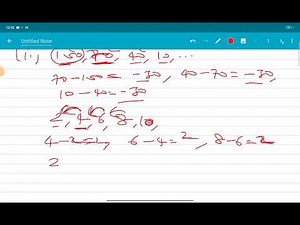 Untitled Note
(ii) 150, 70, 40, 10, ...
70 - 150 = -30, 40 - 70 = -30,
10 - 40 = -30
2, 4, 6, 8, 10
4 - 2 = 2, 6 - 4 = 2, 8 - 6 = 2
2